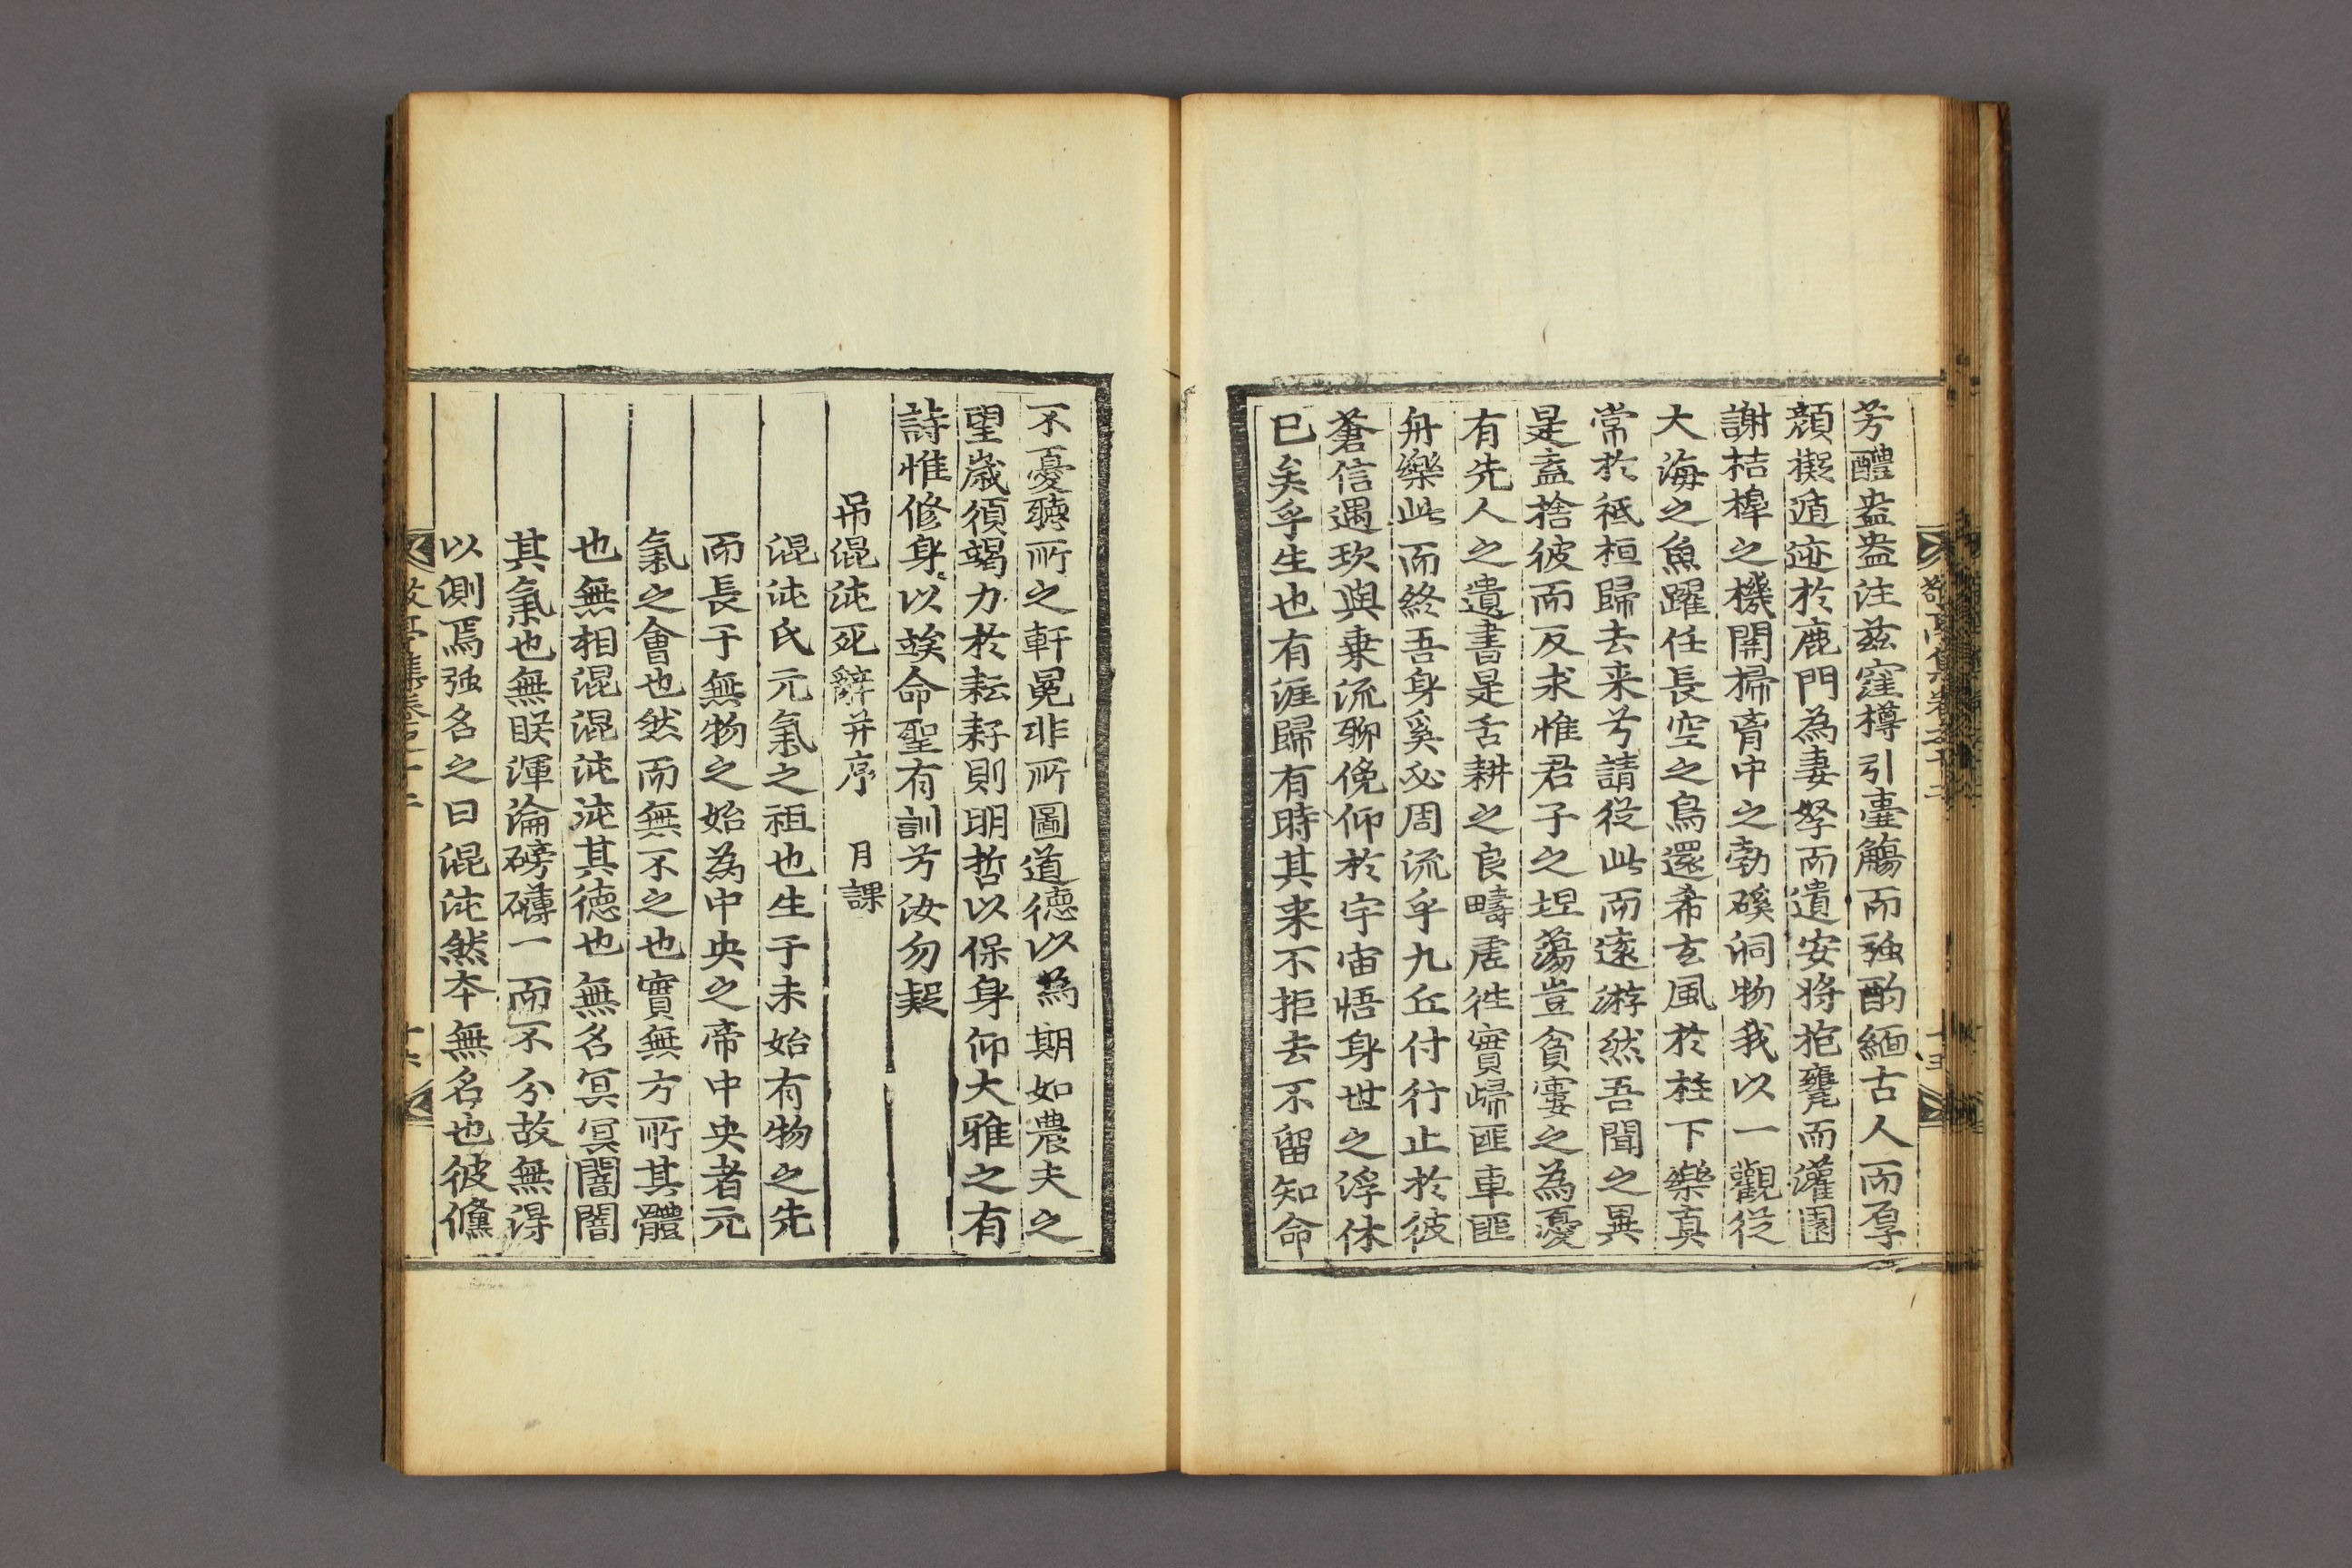 芳醴盎盎注兹窪樽引臺觴而强酌緬古人而厚
顔擬遁迹於鹿門為妻孥而遺安將抱甕而灌園
謝桔槹之機開掃胷中之勃磎洞物我以一觀從
大海之魚躍任長空之鳥還希玄風於柱下樂真
常於祗桓歸去来兮請從此而遠游然吾聞之異
是盍捨彼而反求惟君子之坦蕩豈貧窶之為憂
有先人之遺書是舌耕之良疇虗徃實歸匪車匪
舟樂此而終吾身奚必周流乎九丘付行止於彼
蒼信遇坎與乗流聊俛仰於宇宙悟身世之浮休
已矣乎生也有涯歸有時其来不拒去不留知命
不憂聽所之軒冕非所圖道德以為期如農夫之
望歳須竭力於耘耔則明哲以保身仰大雅之有
詩惟修身以竢命聖有訓兮汝勿疑
吊混沌死辭并序 月課
混沌氏元氣之祖也生于未始有物之先
而長于無物之始為中央之帝中央者元
氣之會也然而無不之也實無方所其體
也無相混混沌沌其德也無名冥冥闇闇
其氣也無眹渾淪磅礴一而不分故無得
以測焉强名之曰混沌然本無名也彼儵